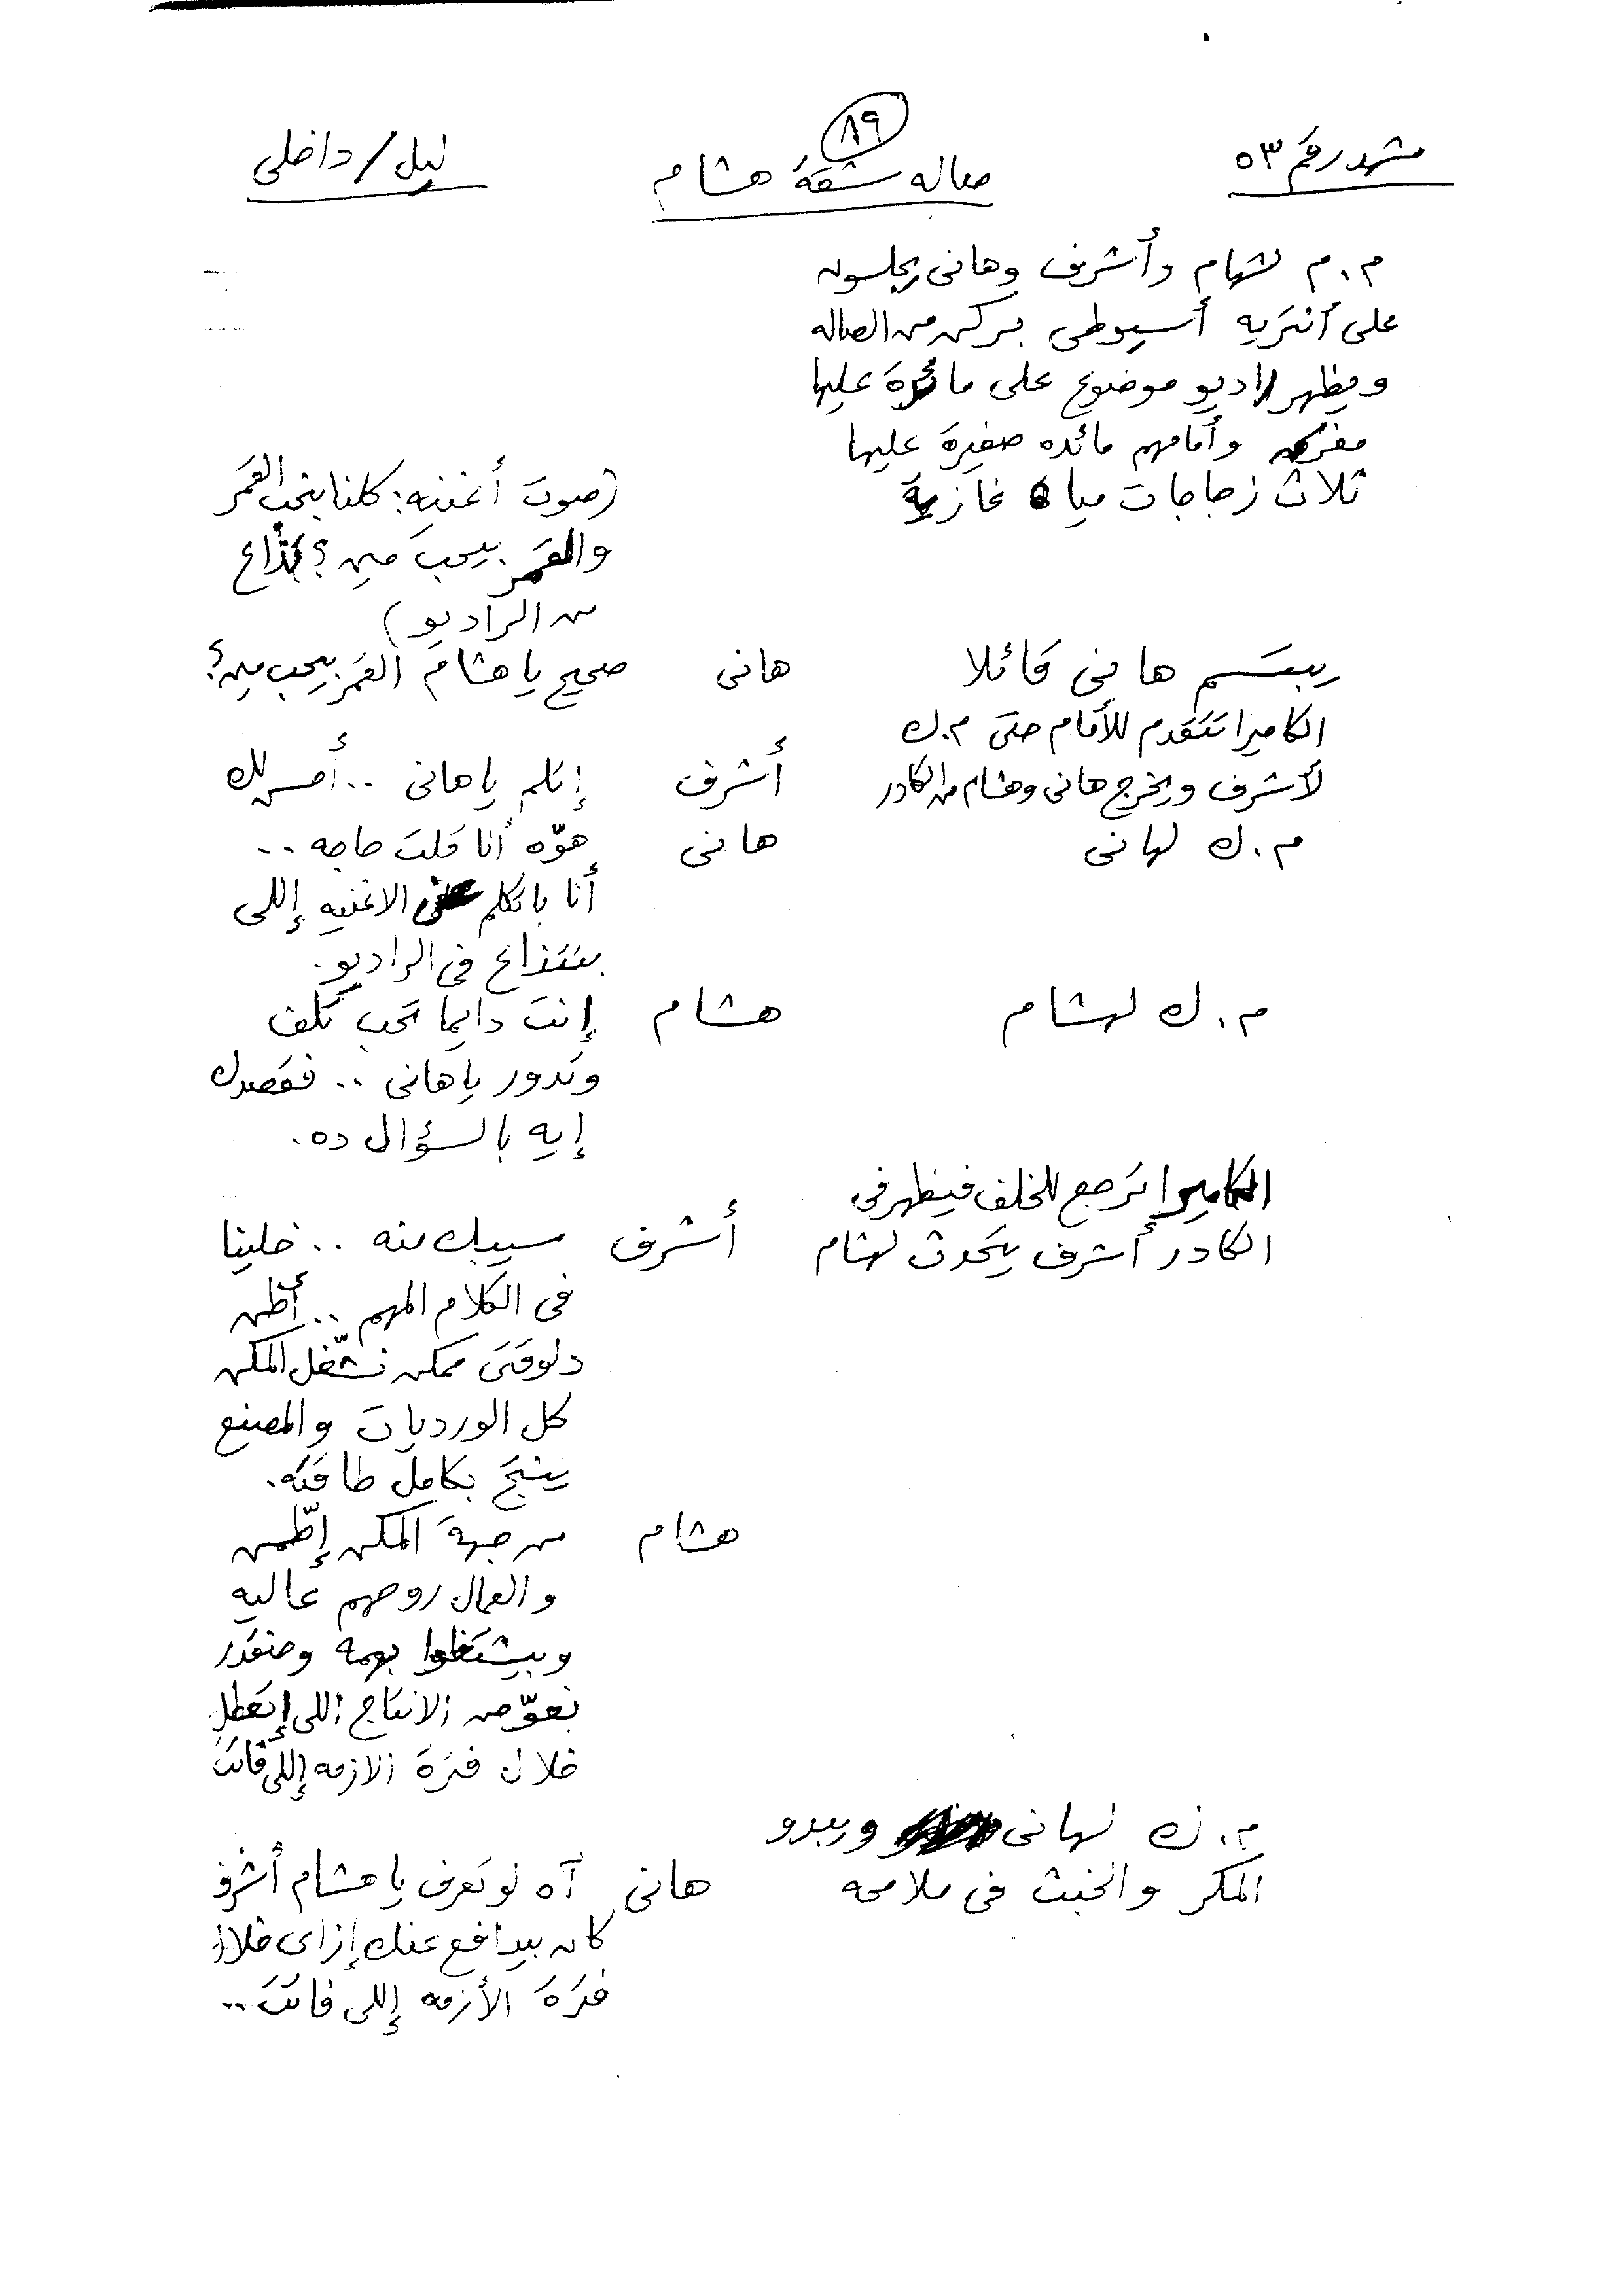 ٨٩
مشهد رقم ٥٣
صاله شقة هشام
ليل / داخلى
م.م لهشام وأشرف وهانى يجلسون
على أنتريه أسيوطى بركن من الصاله
ويظهر راديو موضوع على مائدة عليها
مفرش وأمامهم مائده صغيرة عليها
ثلاث زجاجات مياه غازية
(صوت أغنيه : كلنا بنحب القمر
والقمر بيحب مين ؟ تذاع
من الراديو)
يبتسم هانى قائلا
هانى
صحيح يا هشام القمر بيحب مين ؟
الكاميرا تتقدم للأمام حتى م.ك
لأشرف ويخرج هانى وهشام من الكادر
أشرف
إتلم يا هانى .. أحسن لك
م.ك لهانى
هانى
هوّه أنا قلت حاجه ..
أنا باتكلم عن الاغنيه إللى
بتتذاع فى الراديو.
م.ك لهشام
هشام
إنت دايما تحب تلف
وتدور يا هانى .. فقصدك
إيه بالسؤال ده .
الكاميرا ترجع للخلف فيظهر فى
الكادر أشرف يتحدث لهشام
أشرف
سيبك منه .. خلينا
فى الكلام المهم .. أظن
دلوقتى ممكن نشّغل المكن
كل الورديات والمصنع
ينتج بكامل طاقته.
هشام
من جهة المكن إطّمن
والعمال روحهم عاليه
وبيشتغلوا بهمه وحنقدر
نعوّض الانتاج اللى إتعطل
خلال فترة الازمه إللى فاتت
م.ك لهانى ويبدو
المكر والخبث فى ملامحه
هانى
آه لو تعرف يا هشام أشرف
كان بيدافع عنك إزاى خلال
فترة الأزمه إللى فاتت ..